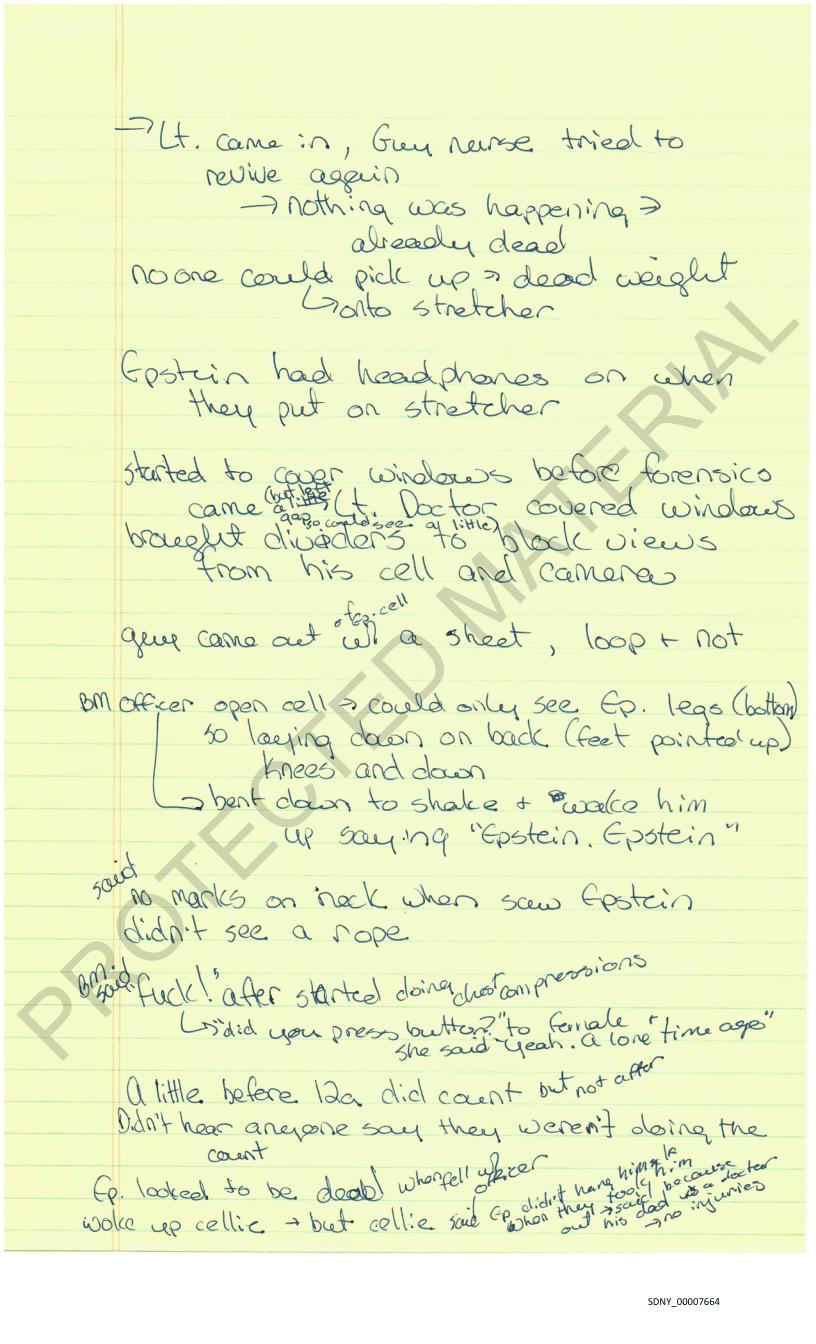 → Lt. came in, Guy nurse tried to
revive again
→ nothing was happening →
already dead
no one could pick up → dead weight
↳ onto stretcher
Epstein had headphones on when
they put on stretcher
started to cover windows before forensics
came (but left a little gap so could see a little) Lt. Doctor covered windows
brought dividers to block views
from his cell and camera
guy came out of ep. cell w/ a sheet, loop + not
BM officer open cell → could only see Ep. legs (bottom)
so laying down on back (feet pointed up)
knees and down
↳ bent down to shake + wake him
up saying "Epstein, Epstein"
said no marks on neck when saw Epstein
didn't see a rope
BM said "fuck!" after started doing chest compressions
↳ "did you press button?" to female
she said "yeah. A long time ago"
A little before 12a did count but not after
Didn't hear anyone say they weren't doing the
count
Ep. looked to be dead when fell officer
woke up cellie → but cellie said Ep didn't hang himself
when they took him out → said because his dad is a doctor
→ no injuries
PROTECTED MATERIAL
SDNY_00007664